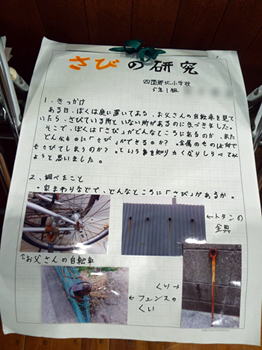 さびの研究
5年1組
1. きっかけ
ある日、ぼくは庭に置いてある、お父さんの自転車を見て
いたら、さびている所といない所があるのに気づきました。
そこで、ぼくは「さび」がどんなところにあるのか、また
どんなものに「さび」ができるのか?金属のものは何で
さびてしまうのか?、という事を知りたくなりしらべてみ
ようと思いました。
2. 調べたこと
・家まわりなどで、どんなところに「さび」があるか。
←トタンの
金具
↑お父さんの自転車
くい→
←フェンスの
くい